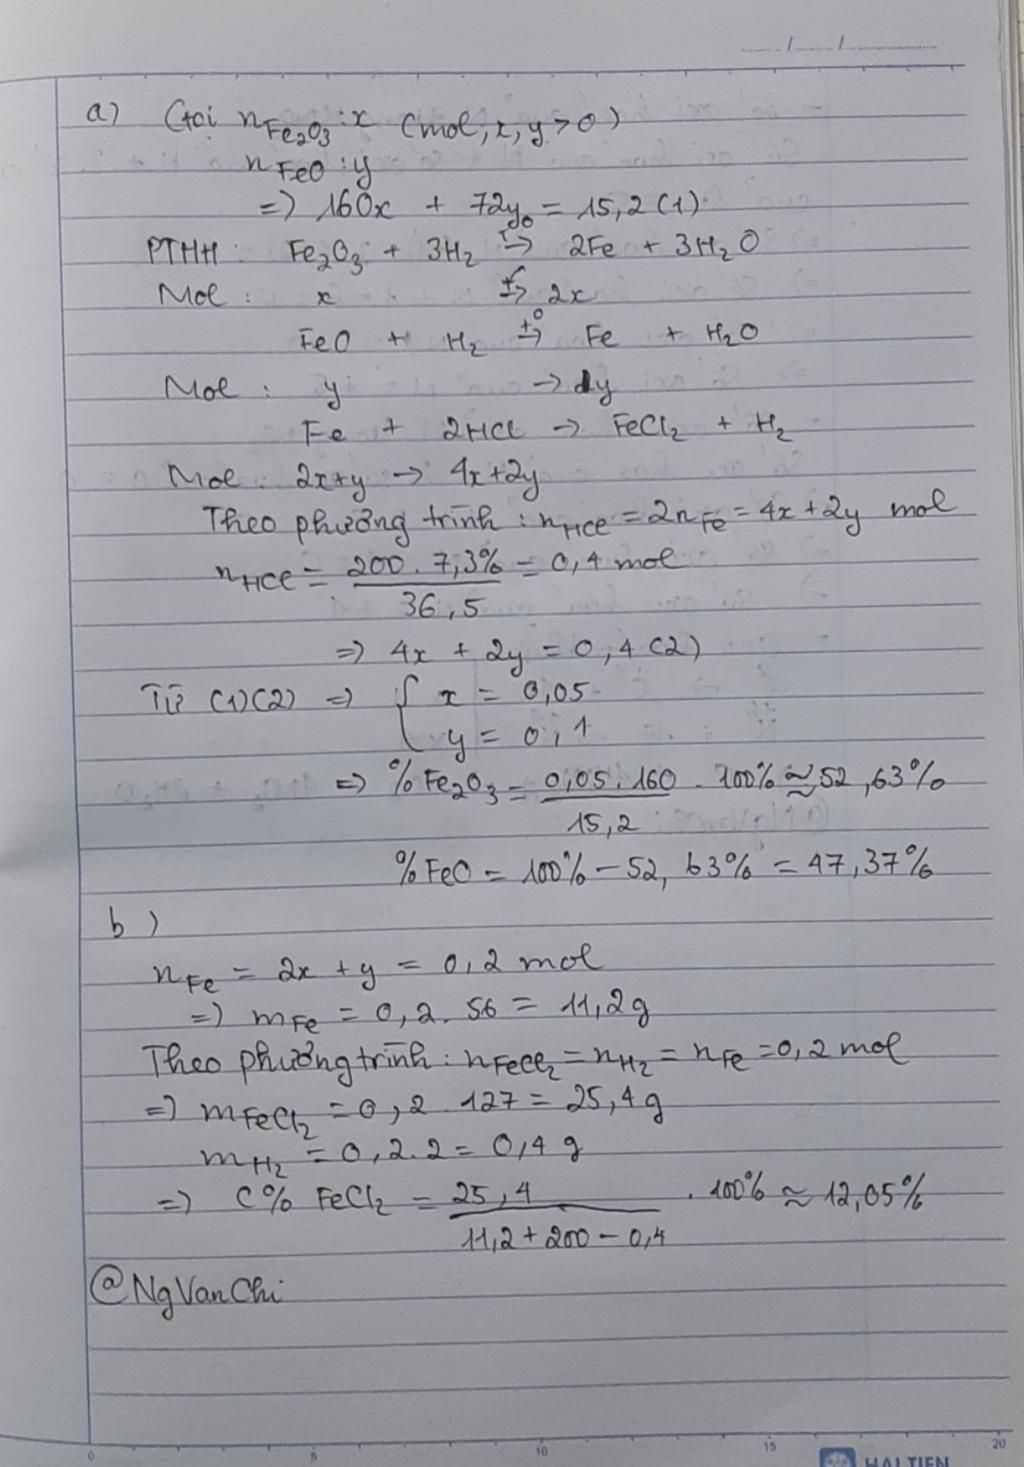 / /
a) Gọi nFe₂O₃ : x (mol, x, y > 0)
nFeO : y
=> 160x + 72y = 15,2 (1)
PTHH : Fe₂O₃ + 3H₂ t°→ 2Fe + 3H₂O
Mol : x → 2x
FeO + H₂ t°→ Fe + H₂O
Mol : y → y
Fe + 2HCl → FeCl₂ + H₂
Mol : 2x+y → 4x+2y
Theo phương trình : nHCl = 2nFe = 4x + 2y mol
nHCl = 200 . 7,3% = 0,4 mol
36,5
=> 4x + 2y = 0,4 (2)
Từ (1)(2) => { x = 0,05
y = 0,1
=> % Fe₂O₃ = 0,05 . 160 . 100% ≈ 52,63%
15,2
% FeO = 100% - 52,63% = 47,37%
b)
nFe = 2x + y = 0,2 mol
=> mFe = 0,2 . 56 = 11,2g
Theo phương trình : nFeCl₂ = nH₂ = nFe = 0,2 mol
=> mFeCl₂ = 0,2 . 127 = 25,4g
mH₂ = 0,2 . 2 = 0,4g
=> C% FeCl₂ = 25,4 . 100% ≈ 12,05%
11,2 + 200 - 0,4
@NgVanChi
0 5 10 15 20
HẢI TIẾN